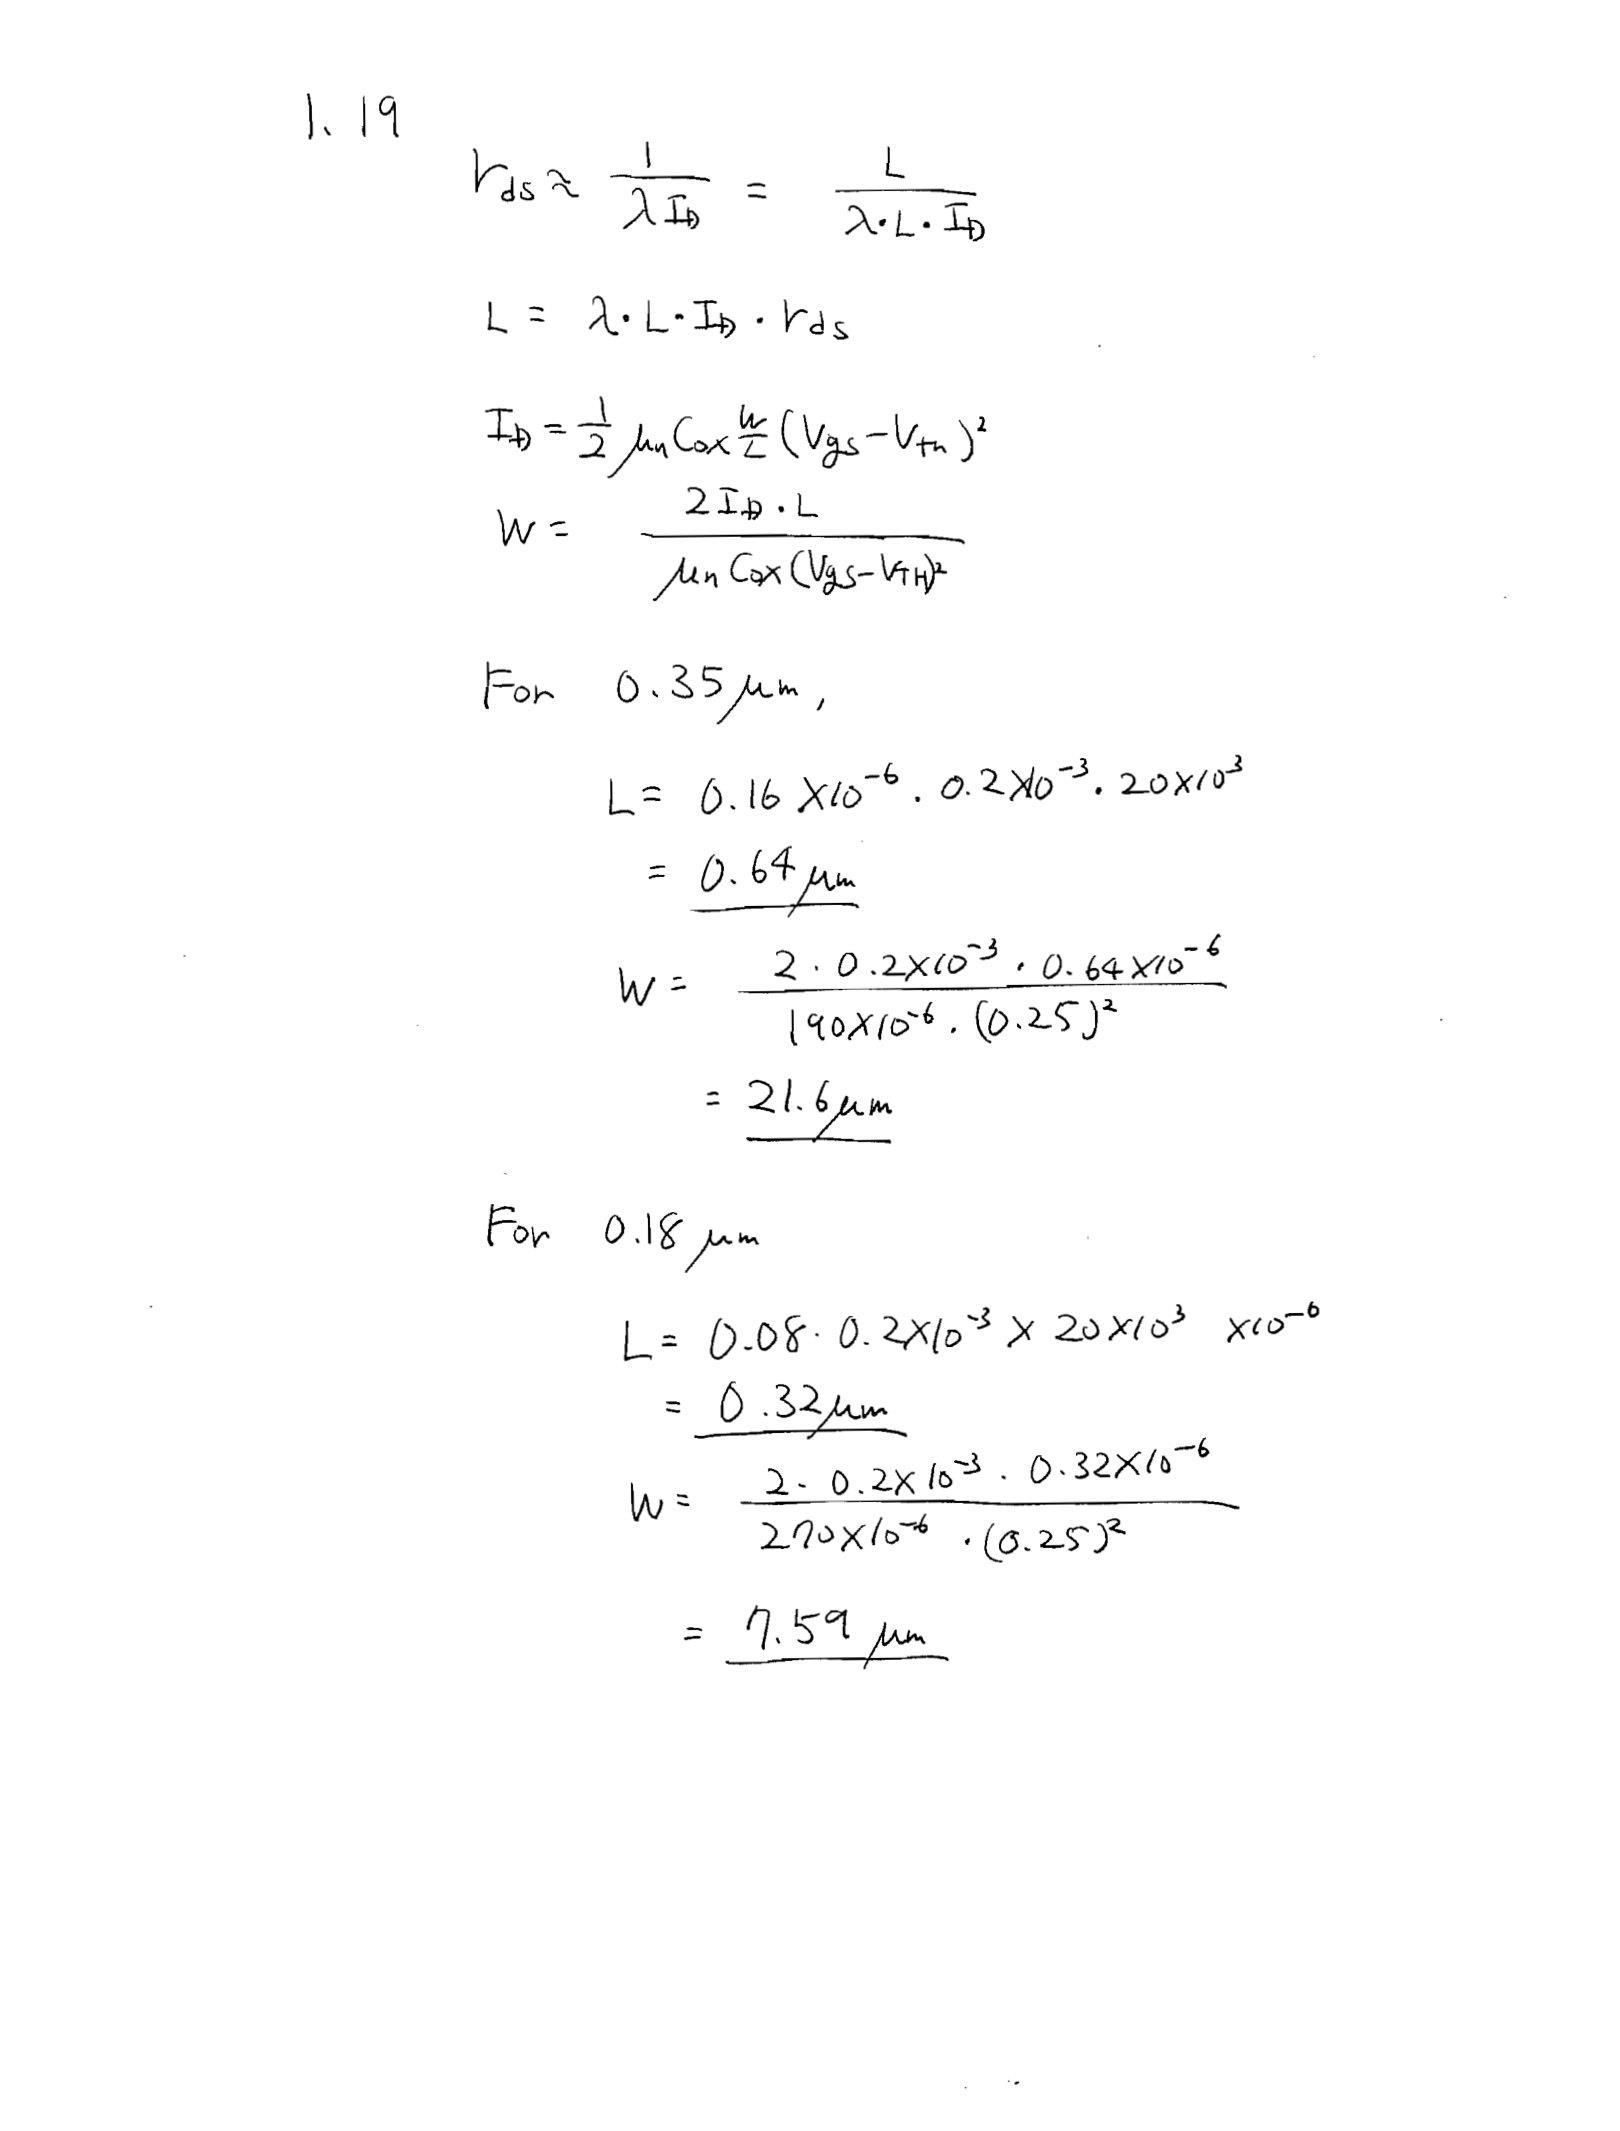 1.19
r_ds ≈ 1/(λ I_D) = L/(λ·L·I_D)
L = λ·L·I_D·r_ds
I_D = 1/2 μn Cox W/L (Vgs - Vtn)²
W = 2 I_D·L / (μn Cox (Vgs - VTH)²)
For 0.35 μm,
L = 0.16 × 10⁻⁶ · 0.2 × 10⁻³ · 20 × 10³
= 0.64 μm
W = 2 · 0.2 × 10⁻³ · 0.64 × 10⁻⁶ / (190 × 10⁻⁶ · (0.25)²)
= 21.6 μm
For 0.18 μm
L = 0.08 · 0.2 × 10⁻³ × 20 × 10³ × 10⁻⁶
= 0.32 μm
W = 2 · 0.2 × 10⁻³ · 0.32 × 10⁻⁶ / (270 × 10⁻⁶ · (0.25)²)
= 7.59 μm